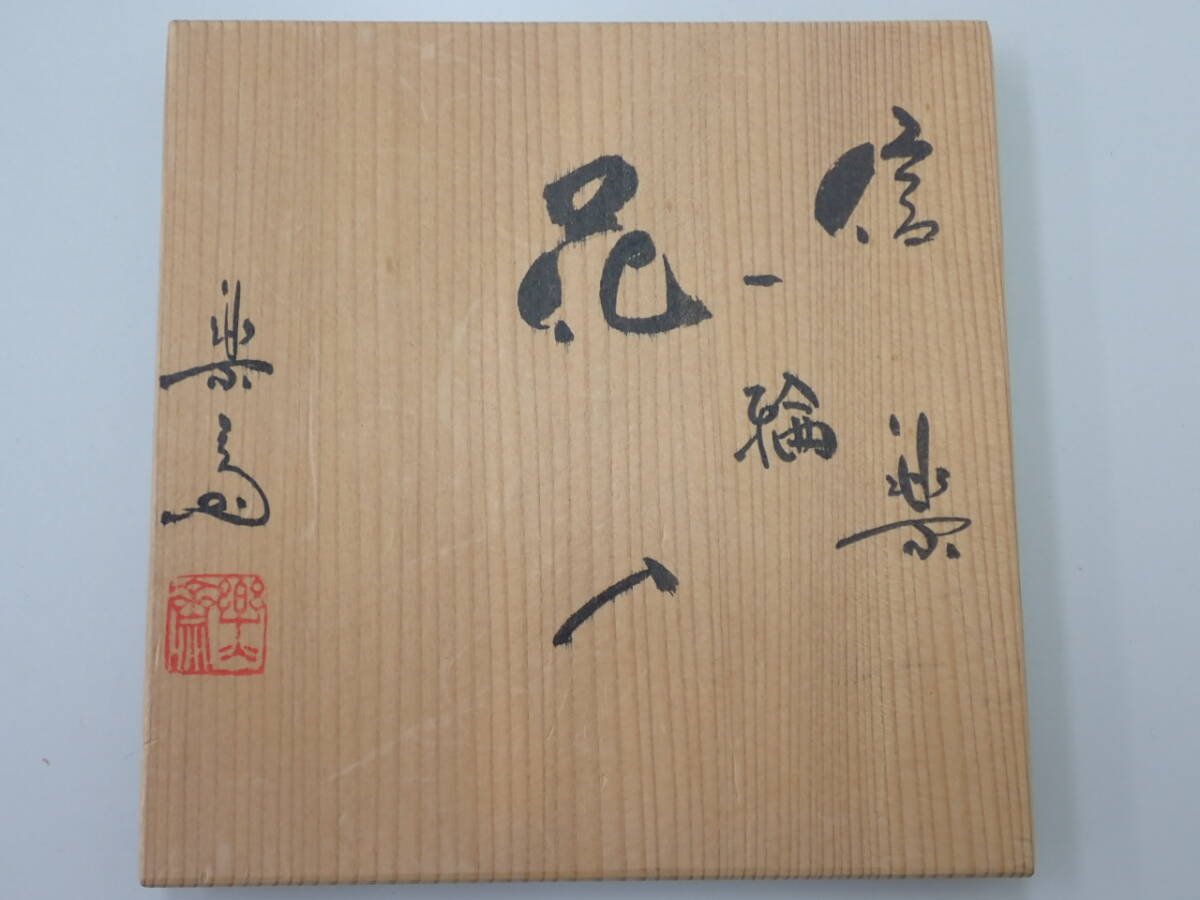 信楽
一輪
花入
楽斎
樂齋